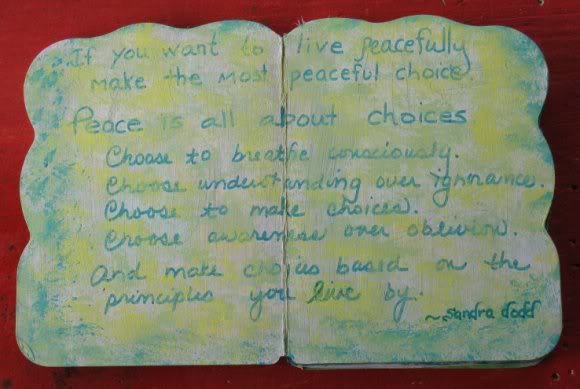 If you want to live peacefully
make the most peaceful choice.
Peace is all about choices
Choose to breathe consciously.
Choose understanding over ignorance.
Choose to make choices.
Choose awareness over oblivion.
And make choices based on the
principles you live by.
~ sandra dodd